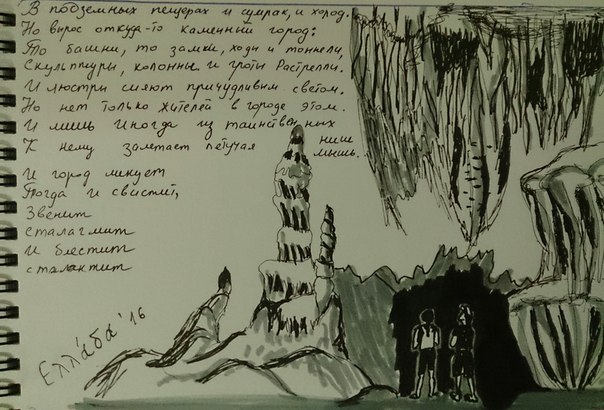 В подземных пещерах и сумрак, и холод.
Но вырос откуда-то каменный город:
То башни, то замки, ходы и тоннели,
Скульптуры, колонны и гроты Растрелли.
И люстры сияют причудливым светом.
Но нет только жителей в городе этом.
И лишь иногда из таинственных ниш
К нему залетает летучая мышь.
И город ликует
Тогда и свистит,
Звенит
сталагмит
И блестит
сталактит
Ελλάδα '16